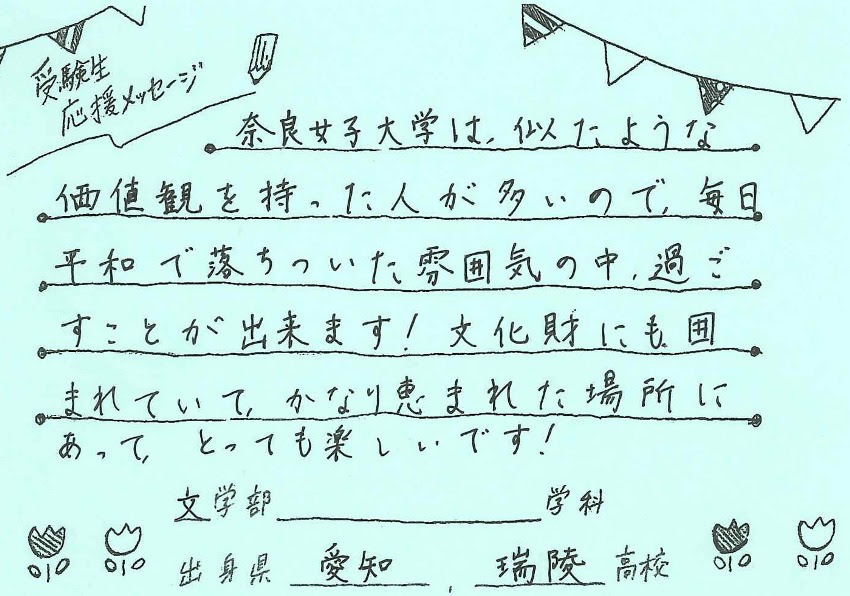 受験生
応援メッセージ
奈良女子大学は、似たような
価値観を持った人が多いので、毎日
平和で落ちついた雰囲気の中、過ご
すことが出来ます！文化財にも囲
まれていて、かなり恵まれた場所に
あって、とっても楽しいです！
文学部 学科
出身県 愛知 , 瑞陵 高校